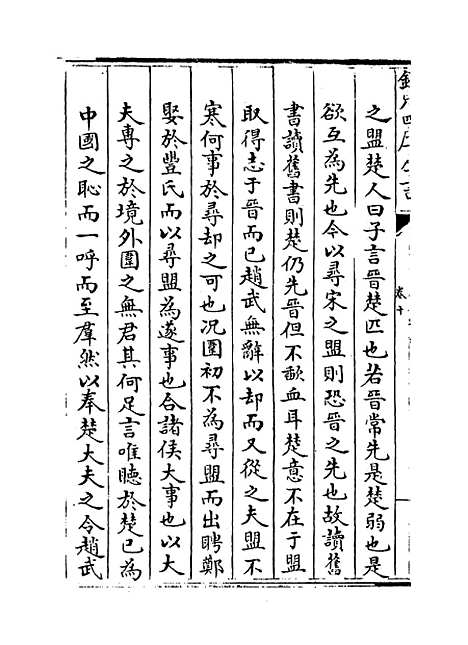 欽定四庫全書
卷十
之盟楚人曰子言晉楚匹也若晉常先是楚弱也是
欲互為先也今以尋宋之盟則恐晉之先也故讀舊
書讀舊書則楚仍先晉但不歃血耳楚意不在于盟
取得志于晉而已趙武無辭以却而又從之夫盟不
寒何事於尋却之可也况圍初不為尋盟而出聘鄭
娶於豐氏而以尋盟為遂事也合諸侯大事也以大
夫專之於境外圍之無君其何足言唯聽於楚已為
中國之恥而一呼而至羣然以奉楚大夫之令趙武